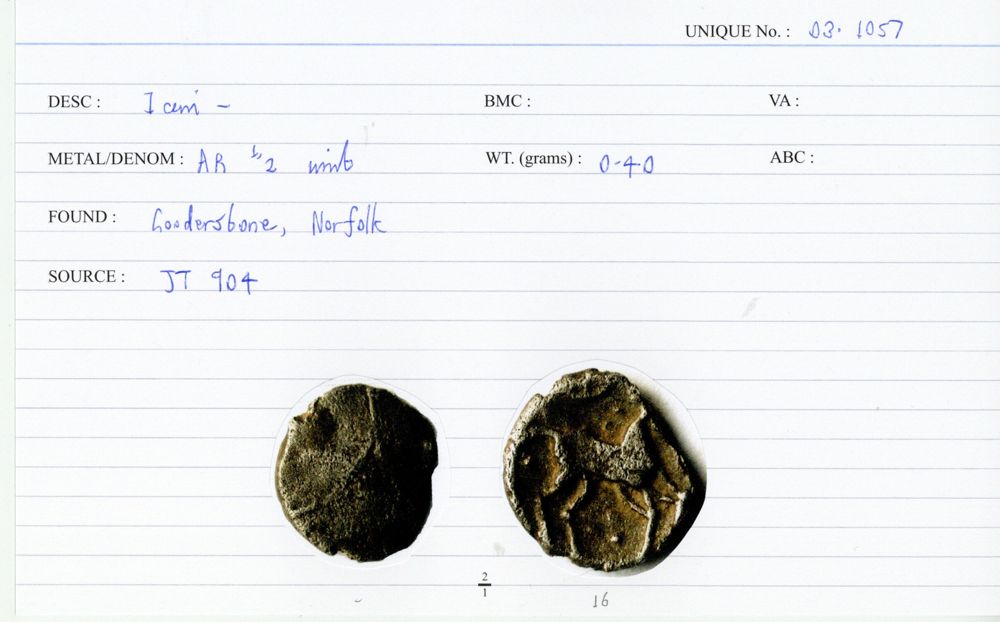 UNIQUE No. : 03. 1057
DESC : Iceni –
BMC :
VA :
METAL/DENOM : AR ½ unit
WT. (grams) : 0.40
ABC :
FOUND : Norfolk
SOURCE : JT 904
2/1
16